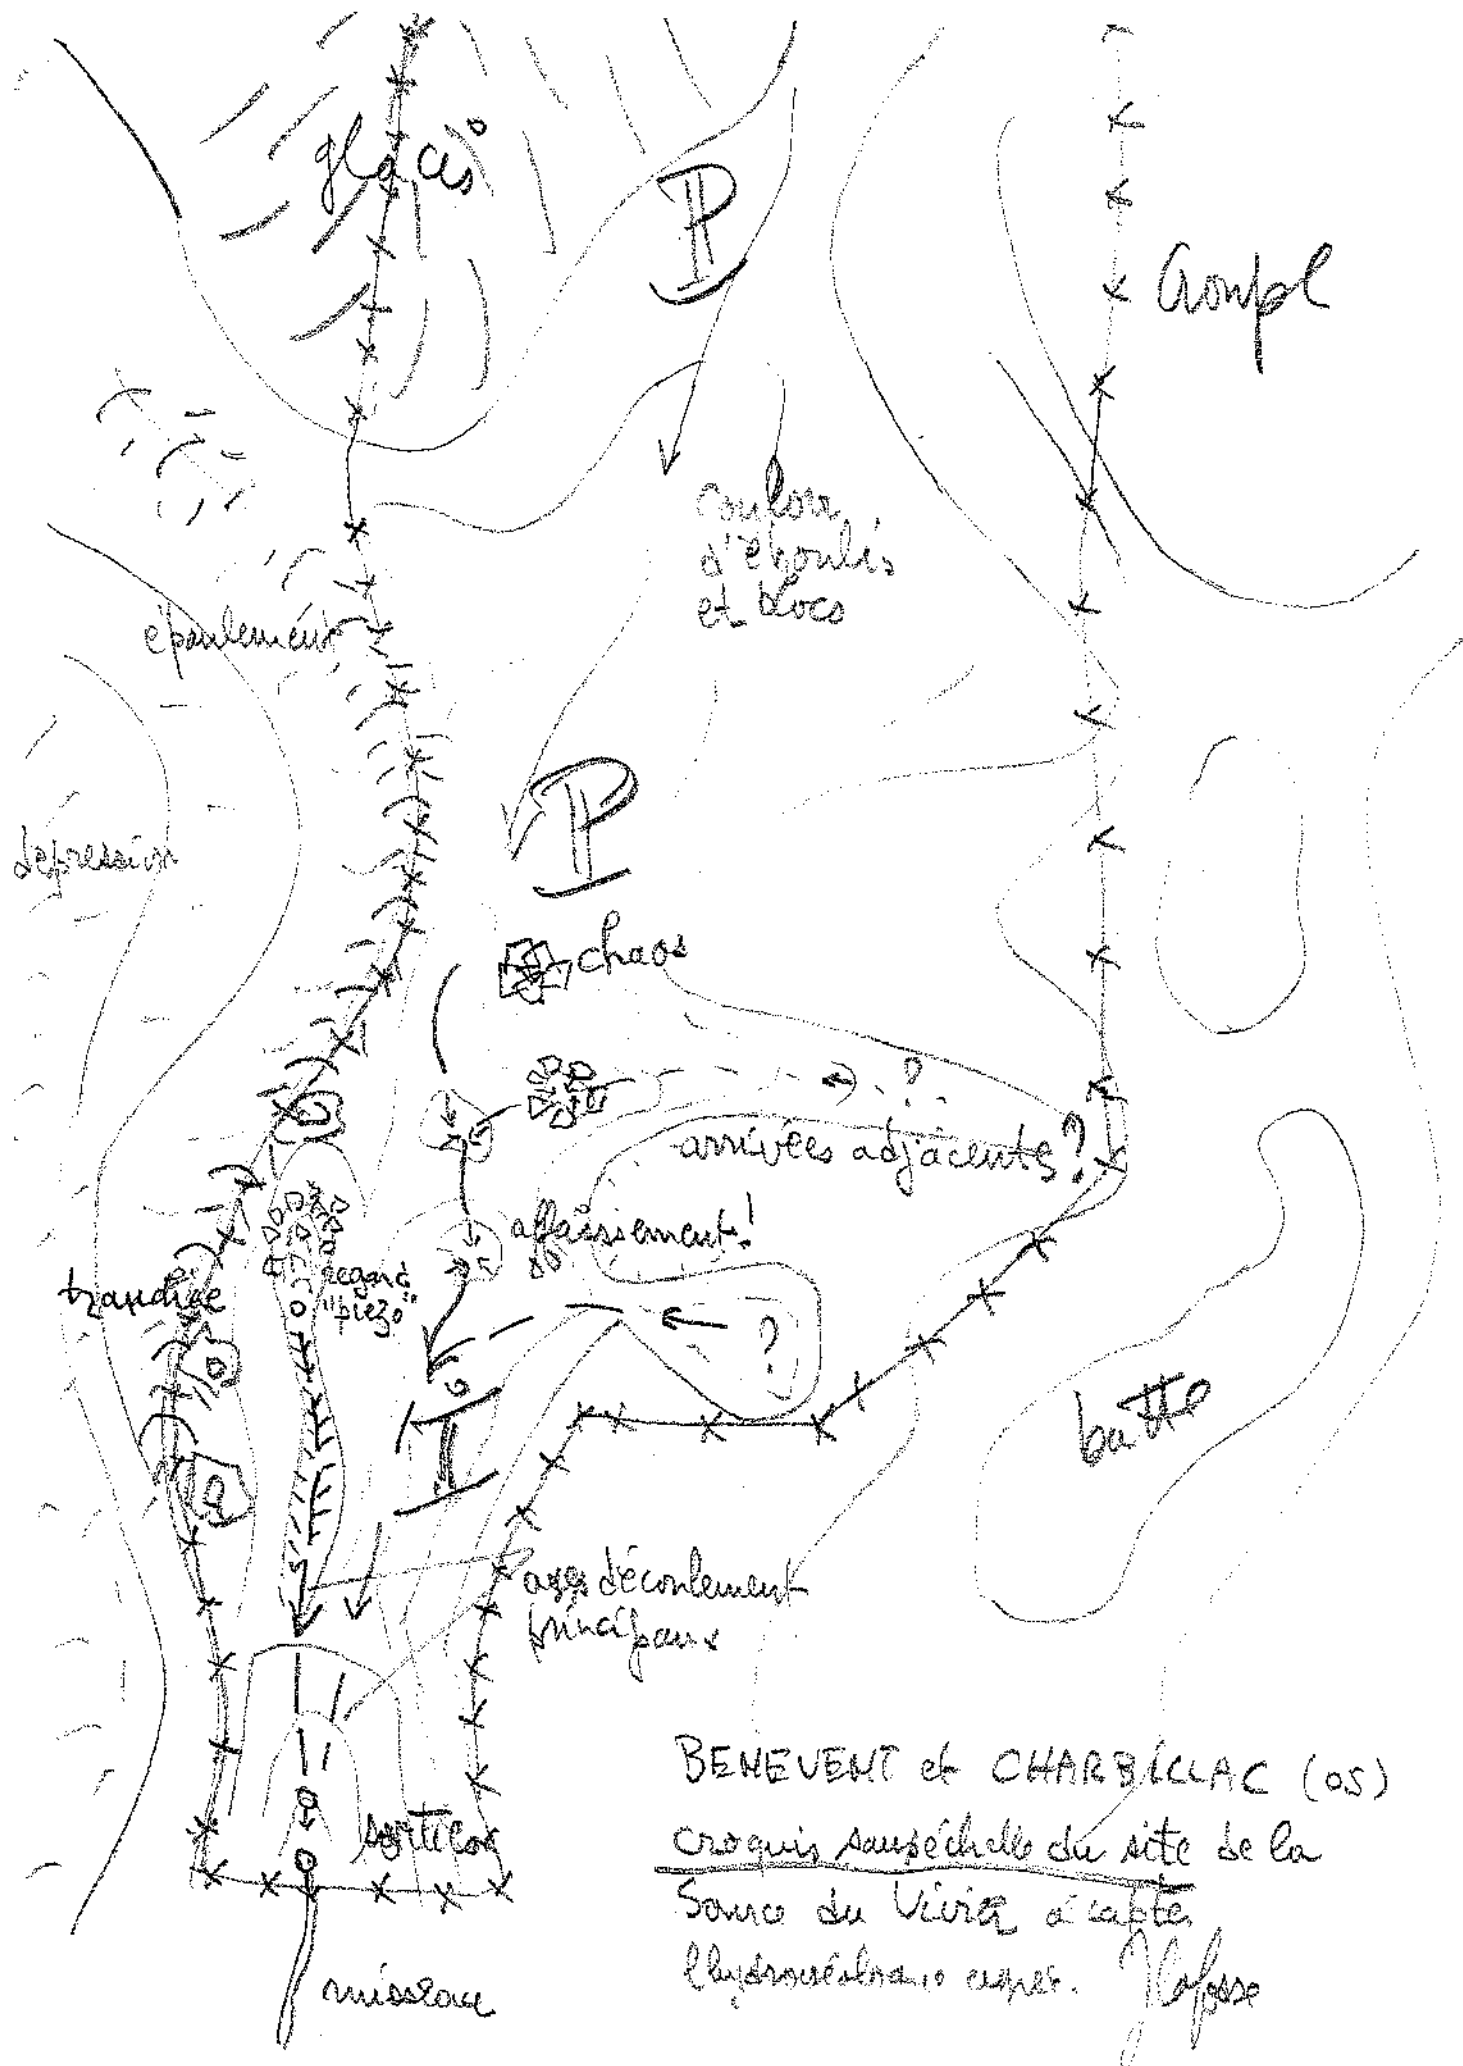 glacis
P
Croupe
couloir
d'éboulis
et blocs
épaulement
P
dépression
chaos
?
arrivées adjacentes ?
affaissement !
regard
"piezo"
tranchée
?
I
butte
axes d'écoulement
principaux
sorties
ruisseau
BENEVENT et CHARBILLAC (05)
croquis sans échelle du site de la
Source du Vivier à capter
l'hydrogéologue agréé.